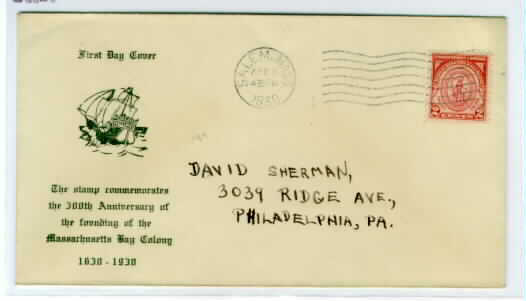 First Day Cover
The stamp commemorates
the 300th Anniversary of
the founding of the
Massachusetts Bay Colony
1630 - 1930
SALEM, MASS.
APR 8
1930
2 CENTS 2
DAVID SHERMAN,
3039 RIDGE AVE.,
PHILADELPHIA, PA.